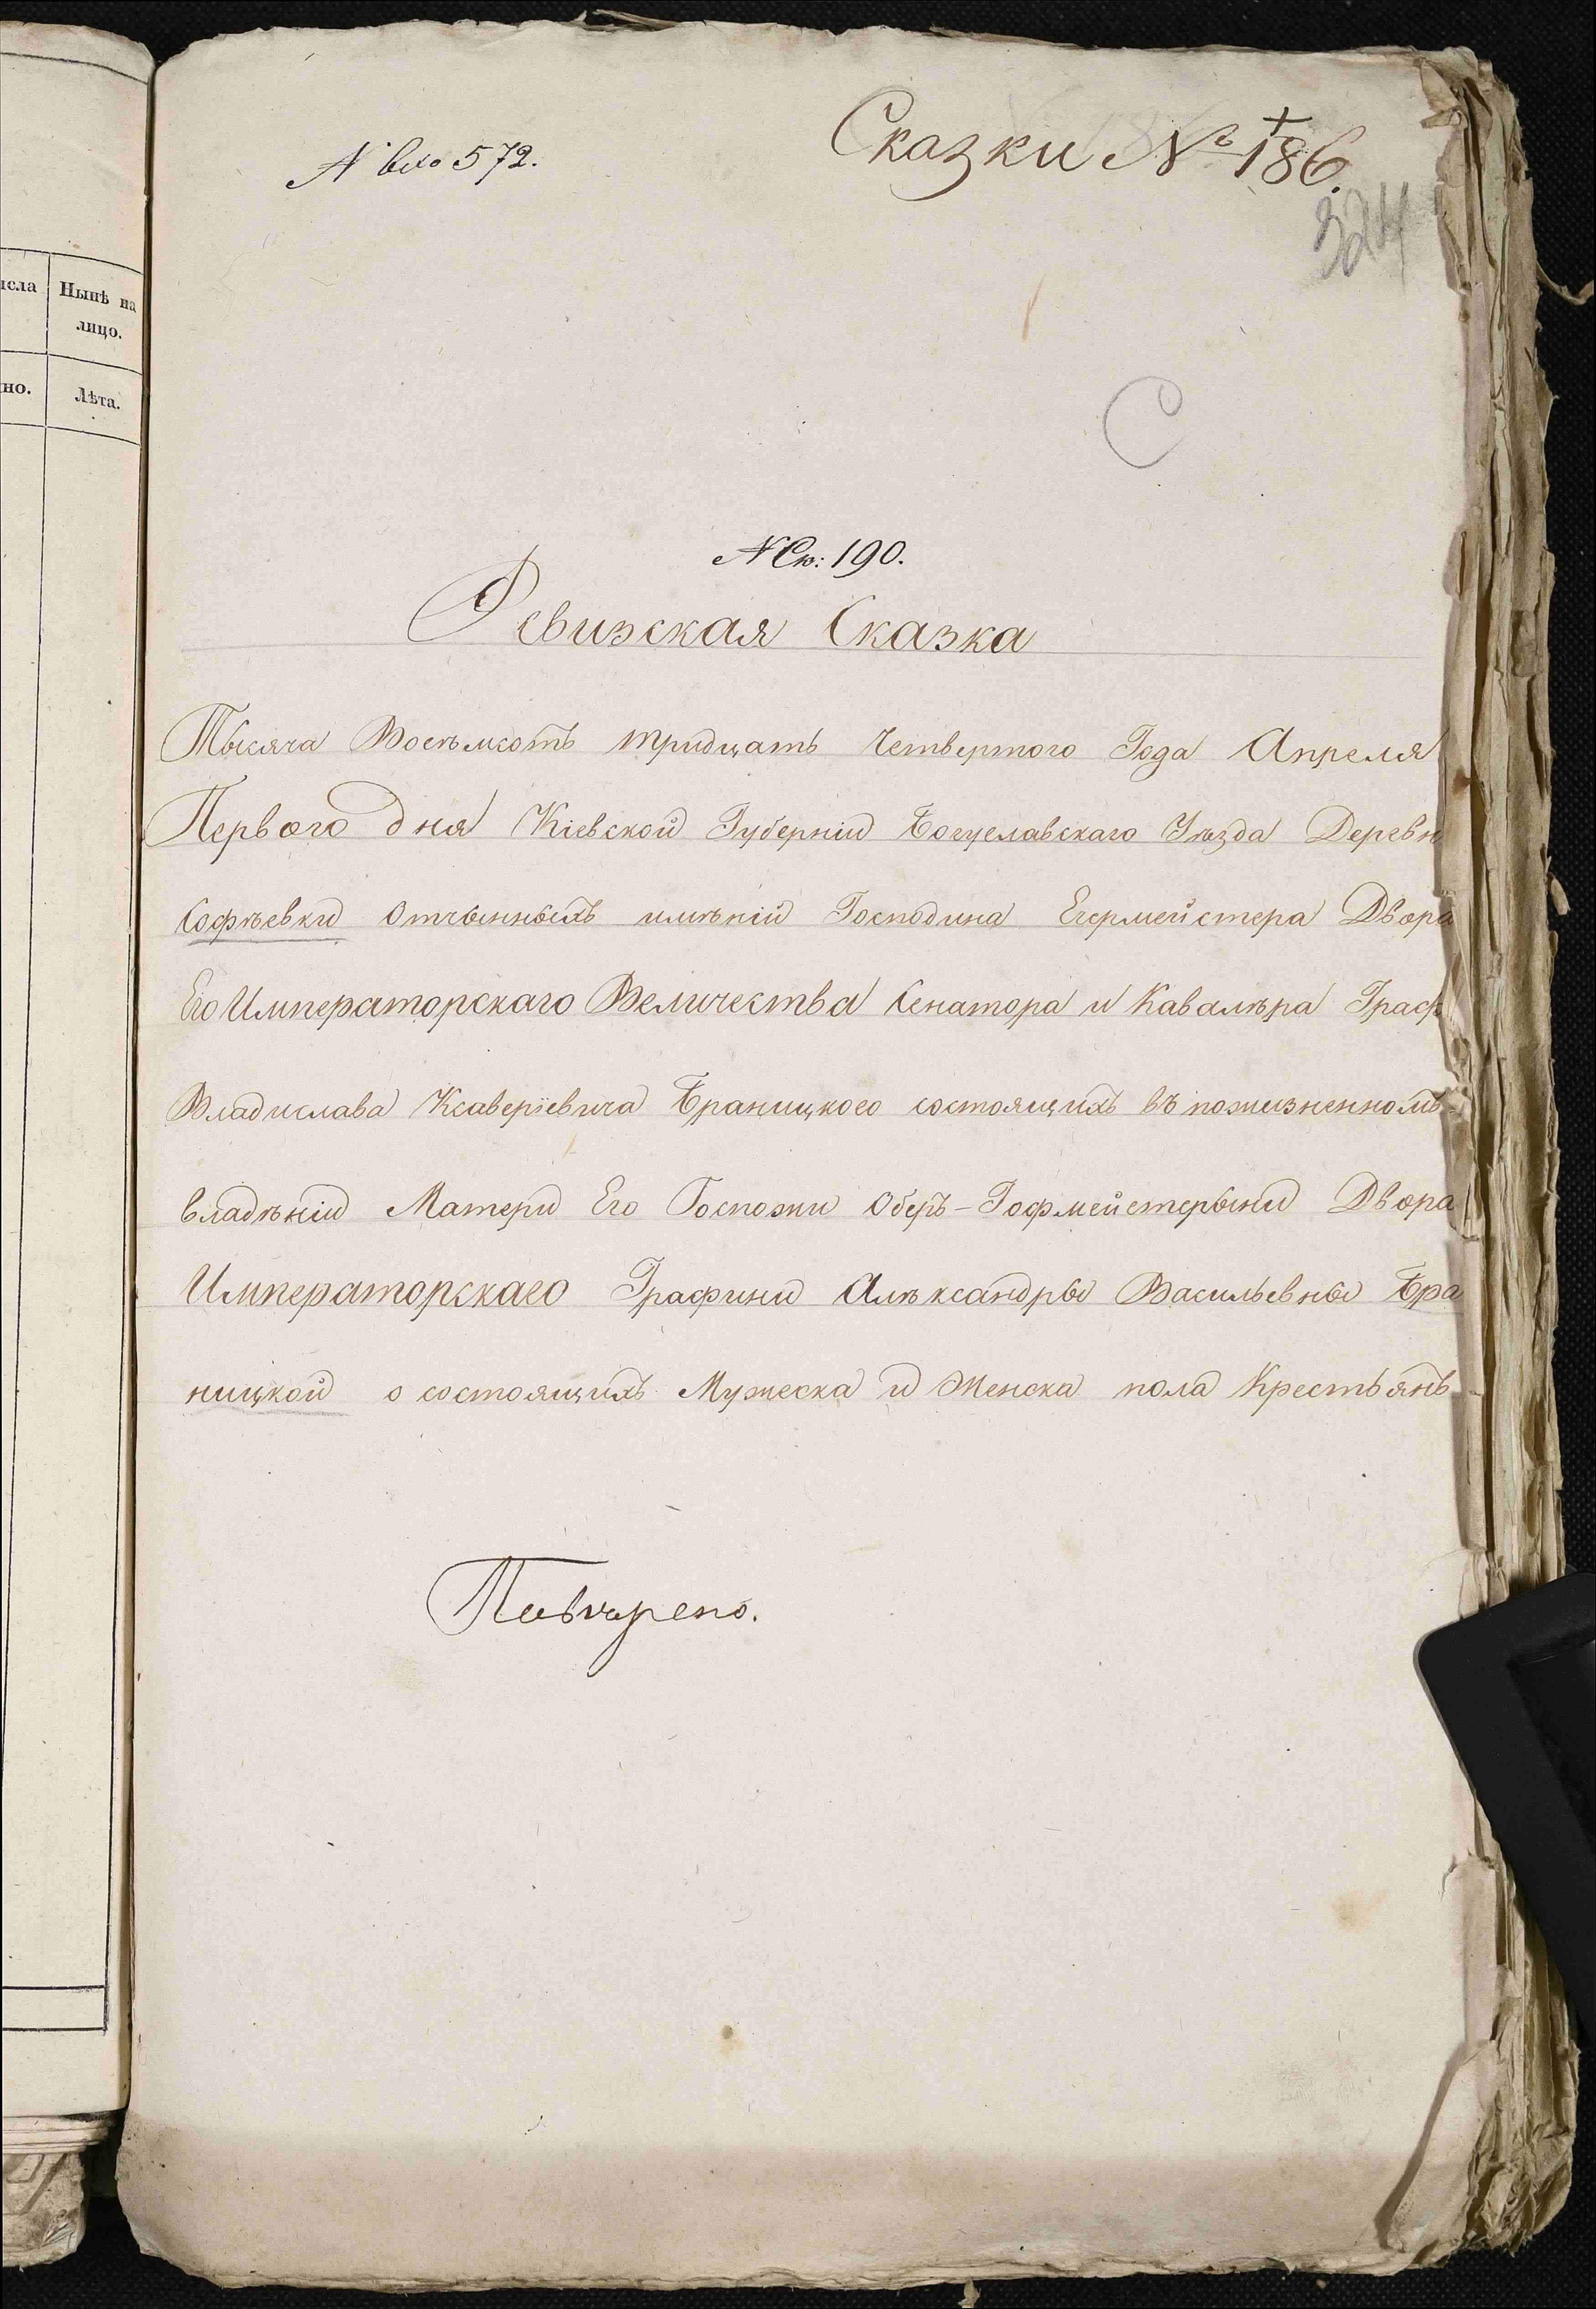 исла
Нынѣ на
лицо.
но.
Лѣта.
Сказки № 186.
324
С
№ Ск: 190.
Ревизская Сказка
Тысяча Восѣмсотъ тридцать Четвертого Года Апреля
Первого дня Кіевской Губерніи Богуславскаго Уѣзда Деревн
Софѣевки Отчынныхъ имѣній Господина Егермейстера Двора
Его Императорскаго Величества Сенатора и Кавалѣра Граф
Владислава Ксаверіевича Браницкого состоящихъ въ пожизненномъ
владѣніи Матери Его Госпожи Оберъ-Гофмейстерыни Двора
Императорскаго Графини Алѣксандры Васильевны Бра
ницкой о состоящихъ Мужеска и Женска пола Крестьянъ